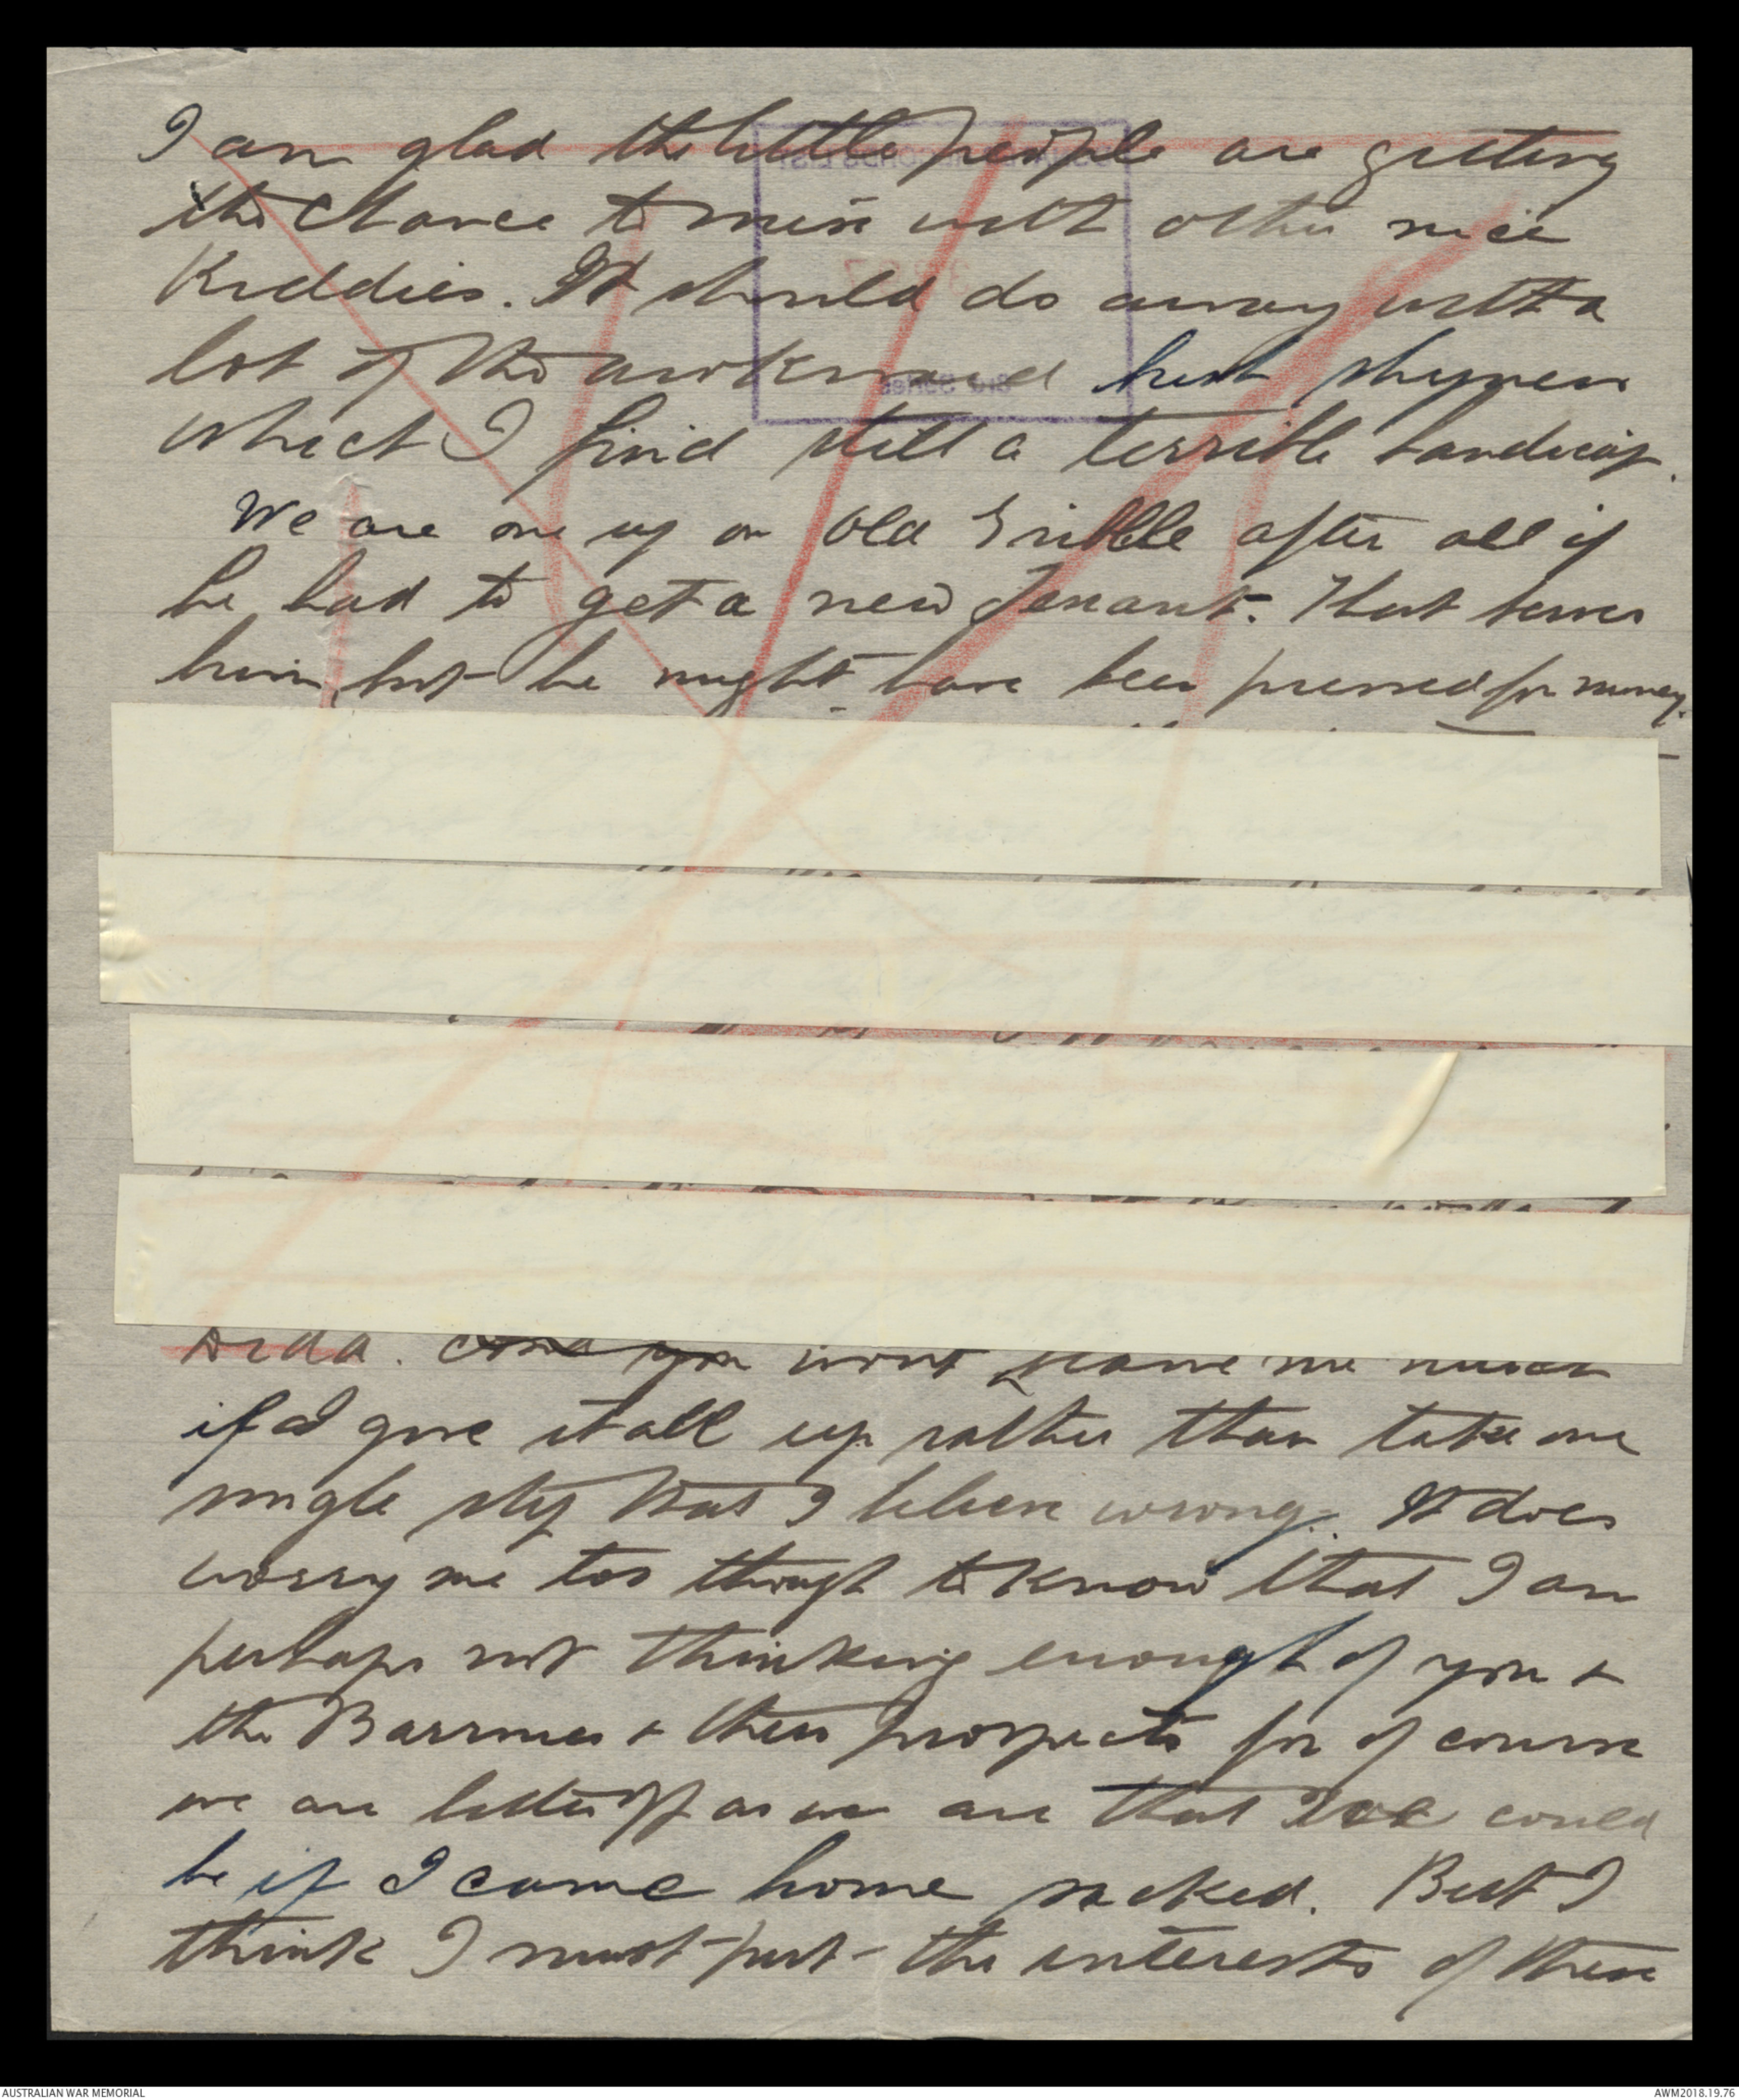 I am glad the little people are getting
the chance to mix with other nice
Kiddies. It should do away with a
lot of the awkward shyness
which I find still a terrible handicap.
We are one up on Old Gribble after all if
he had to get a new Tenant. That serves
him, but he might have been pressed for money.
you wont blame me much
if I give it all up rather than take one
single step that I believe wrong. It does
worry me too though to know that I am
perhaps not thinking enough of you &
the Barrines & their prospects for of course
we are better off as we are that could
be if I came home sacked. But I
think I must put the interests of these
AUSTRALIAN WAR MEMORIAL
AWM2018.19.76